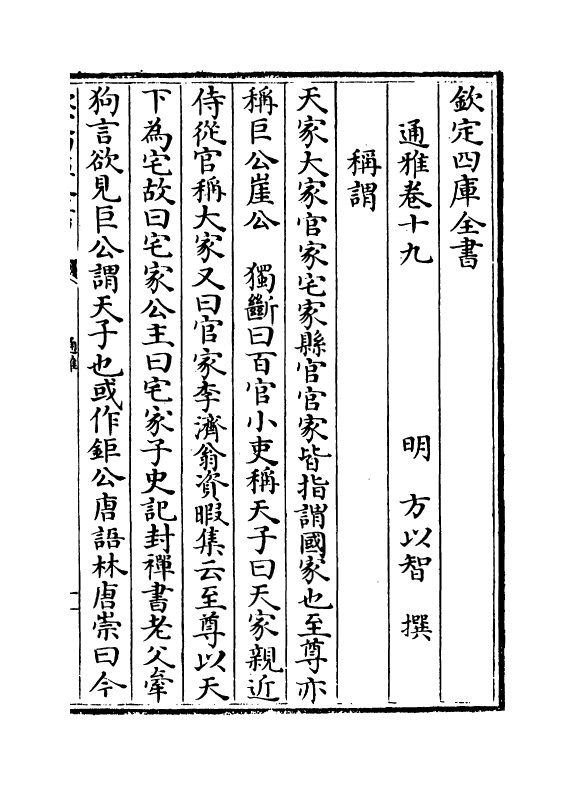 欽定四庫全書
通雅卷十九
明　方以智　撰
稱謂
天家大家官家宅家縣官官家皆指謂國家也至尊亦
稱巨公崖公　獨斷曰百官小吏稱天子曰天家親近
侍從官稱大家又曰官家李濟翁資暇集云至尊以天
下為宅故曰宅家公主曰宅家子史記封禪書老父牽
狗言欲見巨公謂天子也或作鉅公唐語林唐崇曰今
通雅